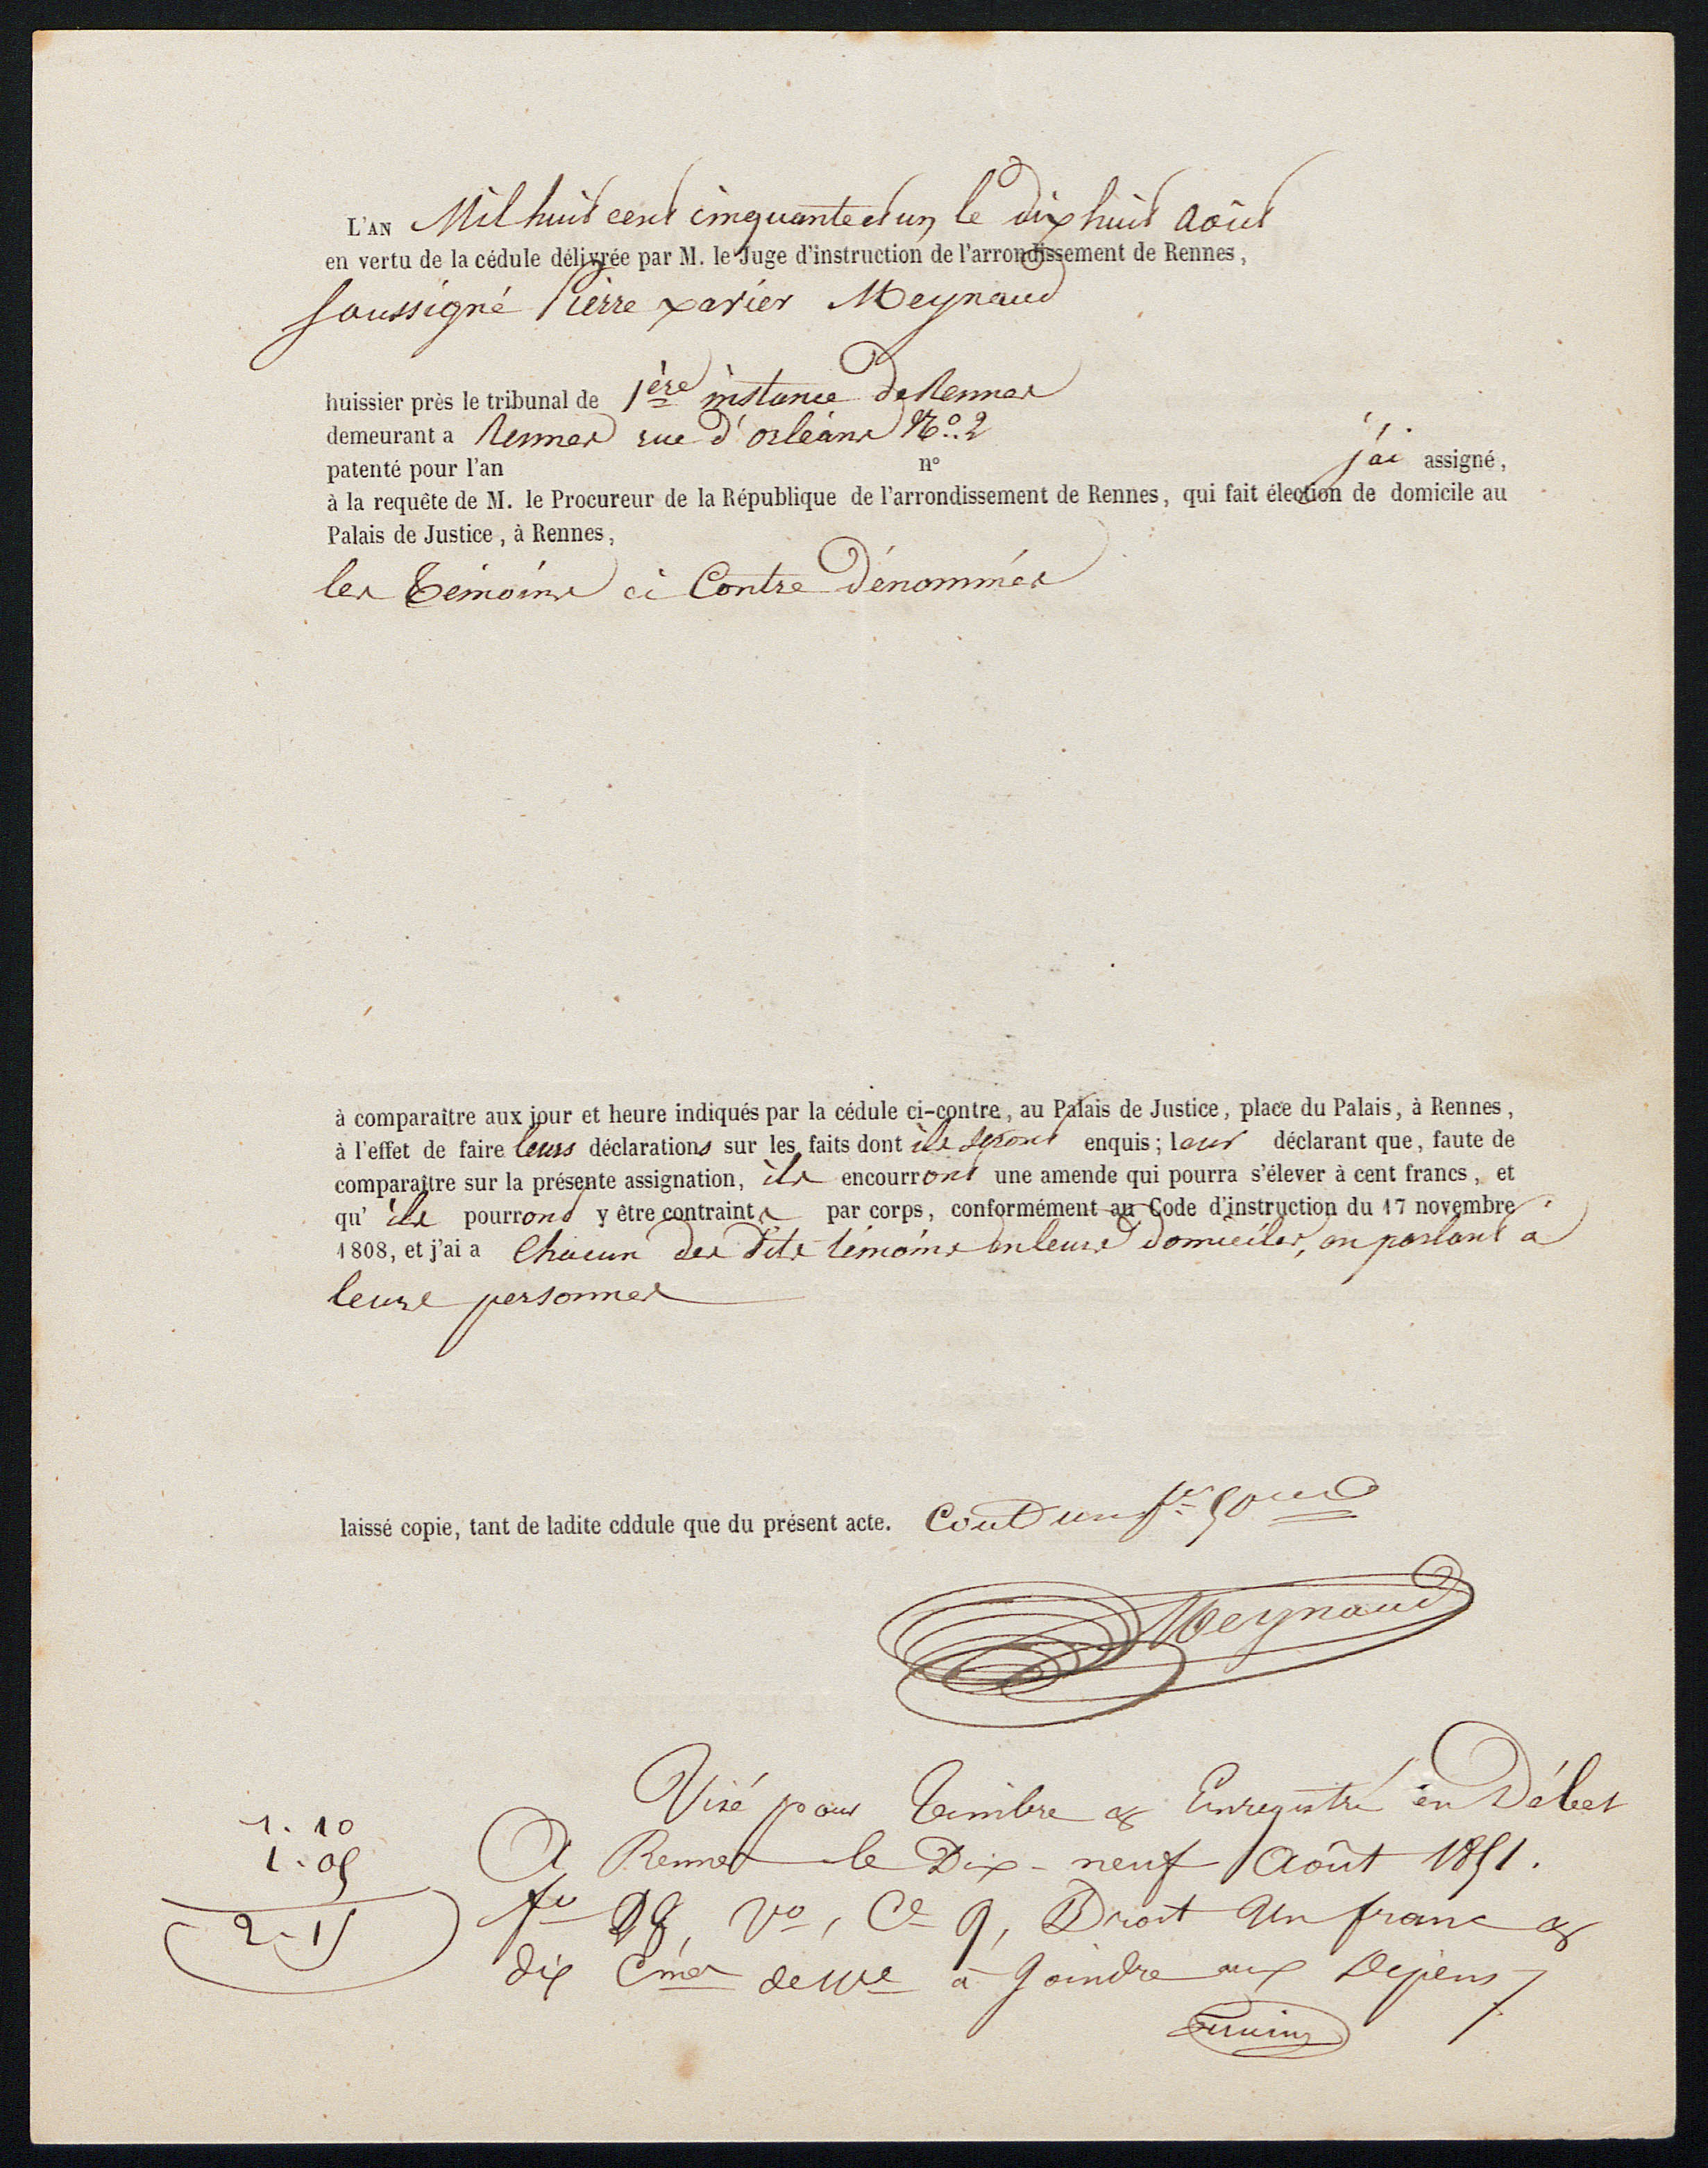 L'AN Mil huit cent cinquante et un, le dix huit août
en vertu de la cédule délivrée par M. le Juge d'instruction de l'arrondissement de Rennes,
Soussigné Pierre xavier Meynaud
huissier près le tribunal de 1ère instance de Rennes
demeurant a Rennes rue d'orléans No. 2
patenté pour l'an n° j'ai assigné,
à la requête de M. le Procureur de la République de l'arrondissement de Rennes, qui fait élection de domicile au
Palais de Justice, à Rennes,
les témoins ci Contre Dénommés
à comparaître aux jour et heure indiqués par la cédule ci-contre, au Palais de Justice, place du Palais, à Rennes,
à l'effet de faire leurs déclarations sur les faits dont ils seront enquis; leur déclarant que, faute de
comparaître sur la présente assignation, ils encourront une amende qui pourra s'élever à cent francs, et
qu' ils pourront y être contraints par corps, conformément au Code d'instruction du 17 novembre
1808, et j'ai a Chacun des dits témoins en leurs domiciles, en parlant à
leurs personnes
laissé copie, tant de ladite cddule que du présent acte. Cout un fr 50
Meynaud
Visé pour timbre & Enregistré en Débet
A Rennes le Dix-neuf Août 1851.
fo 98, Vo, Ce 9, Droit Un franc &
dix Cmes à Joindre aux Dépens
1. 10
1. 05
2. 15